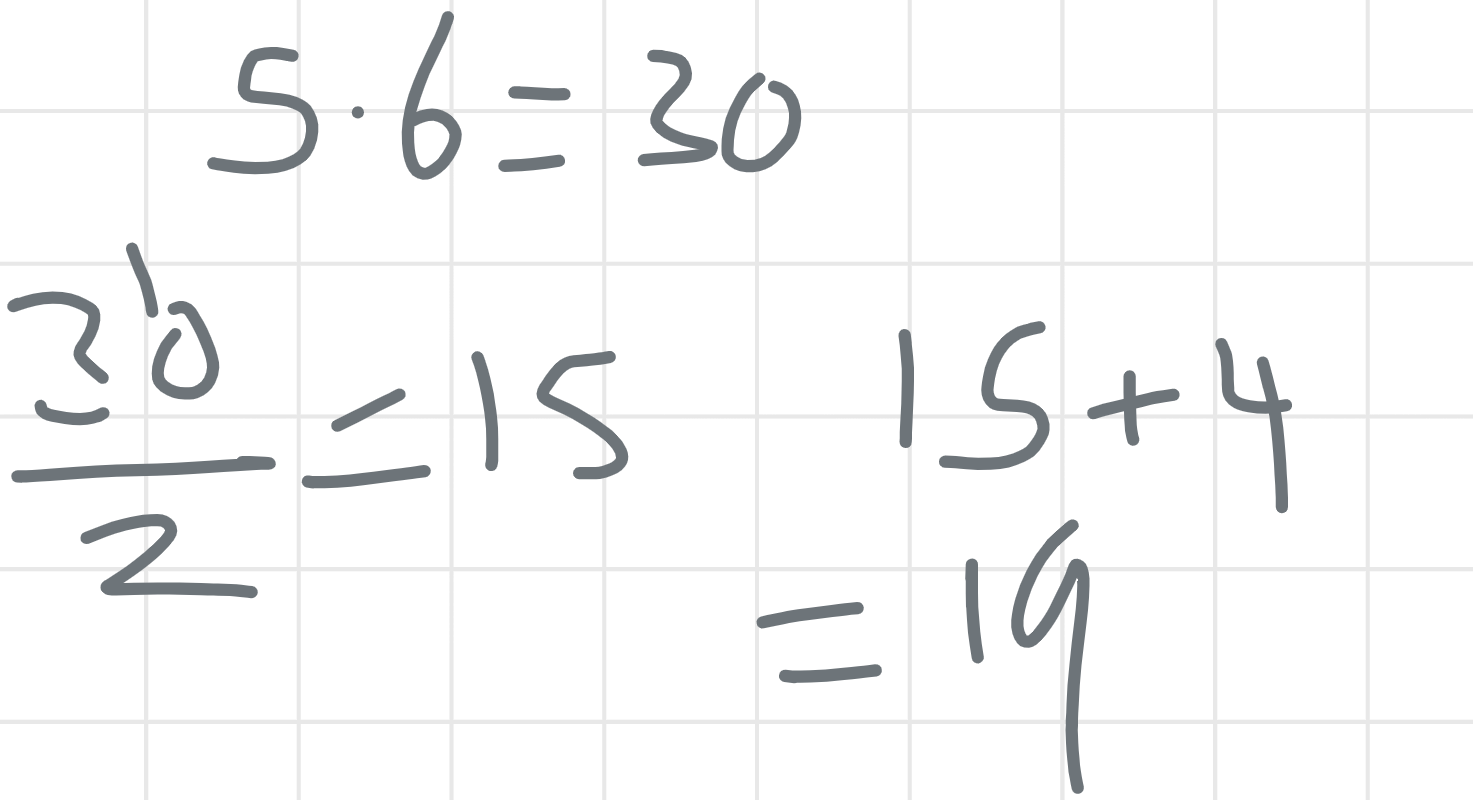 5·6=30
30/2=15
15+4
=19